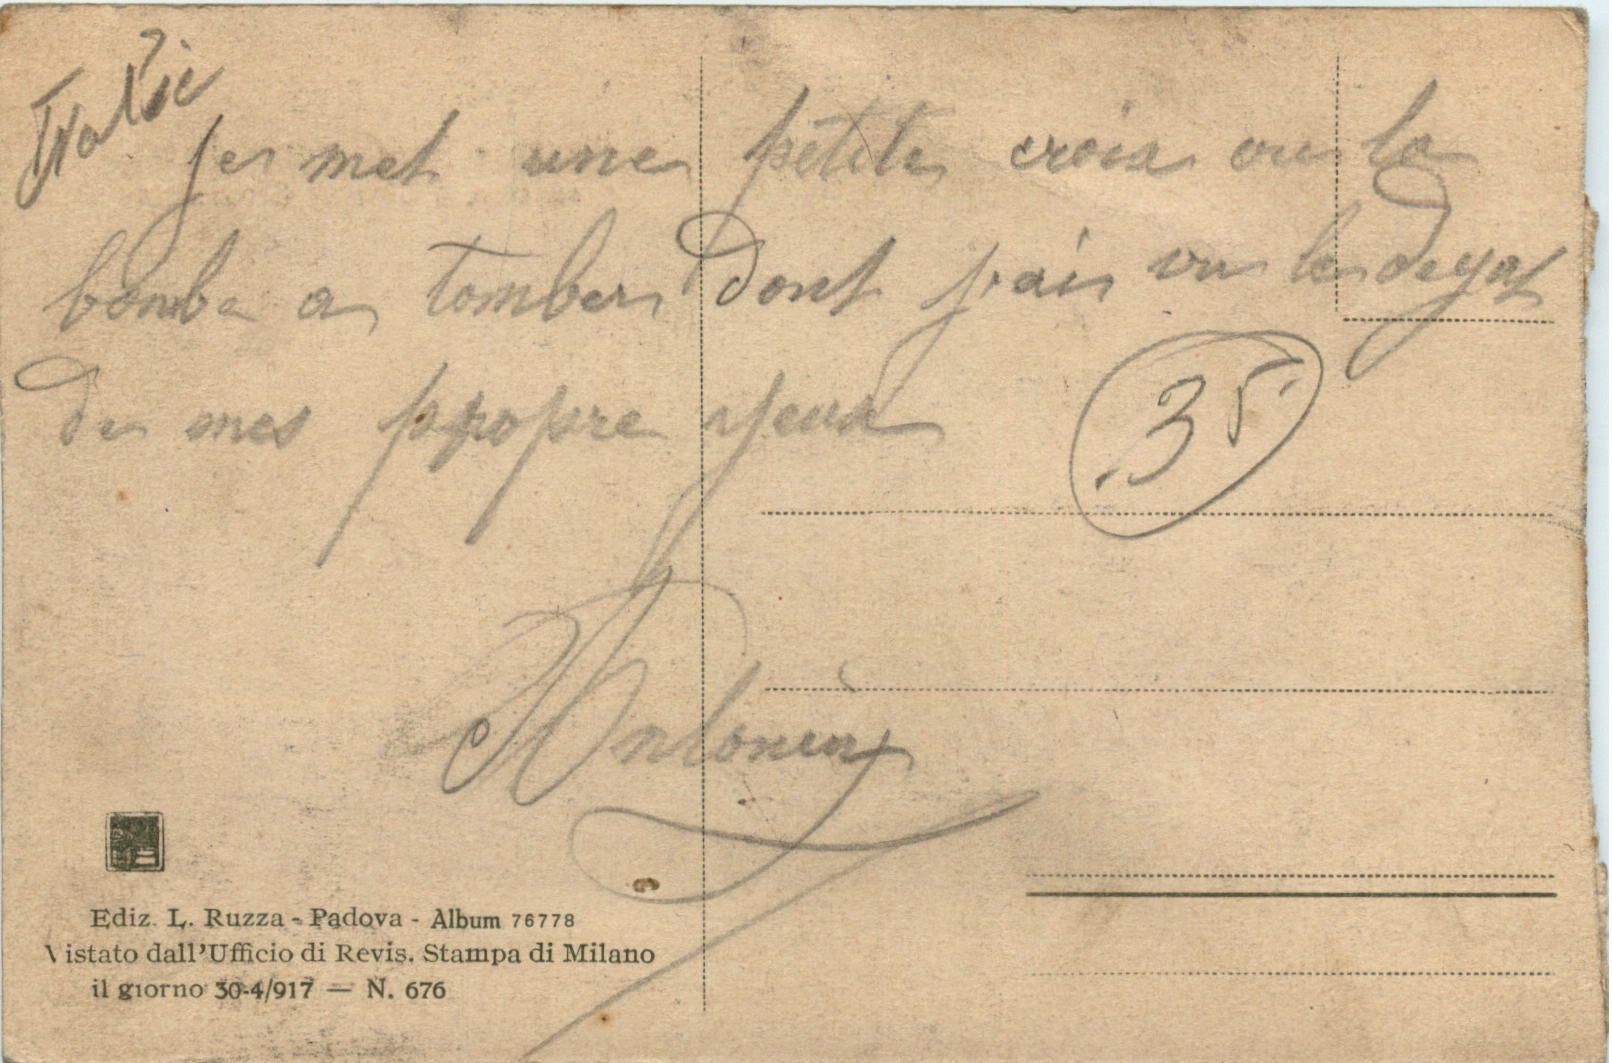 Italie
Je met une petite croix ou la
bombe a tomber dont j'ai vu le degat
de mes propre yeux
35
Antonin
Ediz. L. Ruzza - Padova - Album 76778
Vistato dall'Ufficio di Revis. Stampa di Milano
il giorno 30-4/917 — N. 676